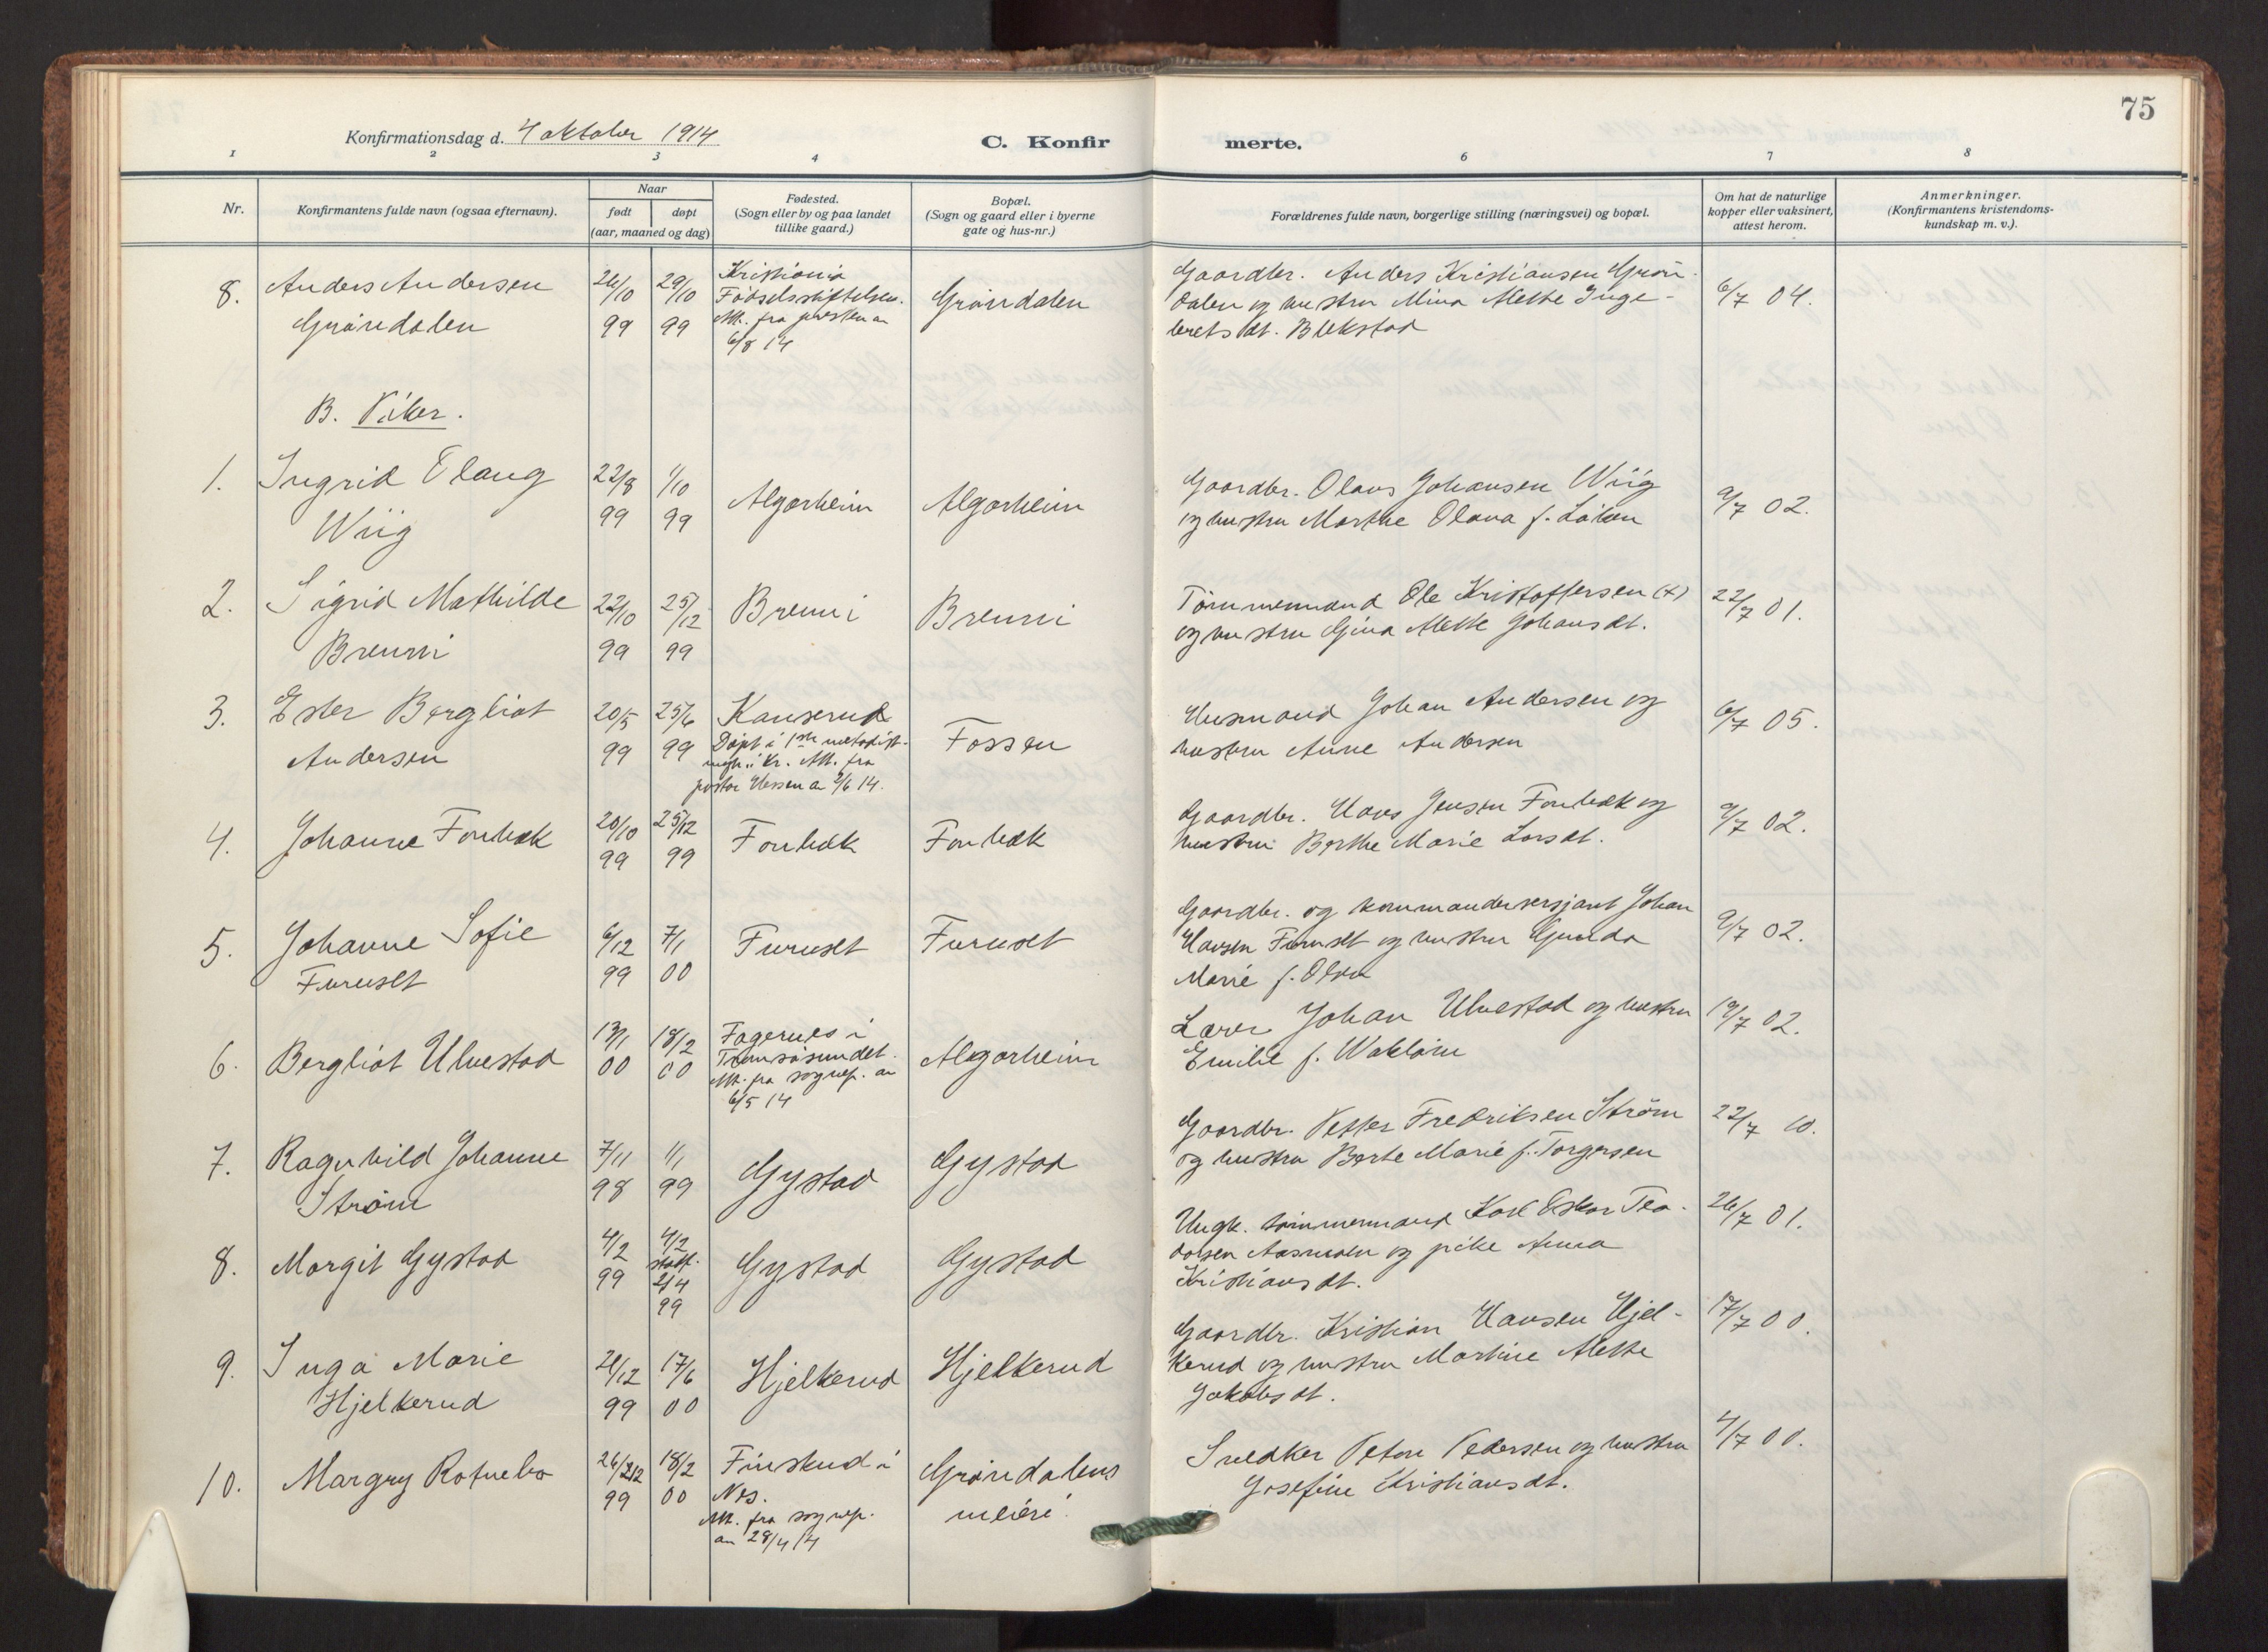 75
Konfirmationsdag d. 4 oktober 1914
C. Konfirmerte.
1 2 3 4 6 7 8
Nr.
Konfirmantens fulde navn (ogsaa efternavn).
Naar
født døpt
(aar, maaned og dag)
Fødested.
(Sogn eller by og paa landet
tillike gaard.)
Bopæl.
(Sogn og gaard eller i byerne
gate og hus-nr.)
Forældrenes fulde navn, borgerlige stilling (næringsvei) og bopæl.
Om hat de naturlige
kopper eller vaksinert,
attest herom.
Anmerkninger.
(Konfirmantens kristendoms-
kundskap m. v.).
8. Anders Andersen
Grøndalen
26/10 99
29/10 99
Kristiania
Fødselsstiftelsen.
Att. fra presten av
6/8 14
Grøndalen
Gaardbr. Anders Kristiansen Grøn-
dalen og hustru Mina Mette Inge-
bretsdt. Blekstad
6/7 04.
B. Piker.
1. Ingrid Olaug
Wiig
22/8 99
1/10 99
Algarheim
Algarheim
Gaardbr. Olaus Johansen Wiig
og hustru Marthe Olava f. Løken
9/7 02.
2. Sigrid Mathilde
Brenni
22/10 99
25/12 99
Brenni
Brenni
Tømmermand Ole Kristoffersen (+)
og hustru Gina Mette Johansdt.
22/7 01.
3. Ester Bergliot
Andersen
20/5 99
25/6 99
Kauserud
Døpt i 1ste metodist-
mgh. i Kr. Att. fra
pastor av 2/6 14.
Fossen
Husmand Johan Andersen og
hustru Anne Andersen
6/7 05.
4. Johanne Fonbæk
20/10 99
25/12 99
Fonbæk
Fonbæk
Gaardbr. Hans Jensen Fonbæk og
hustru Berthe Marie Larsdt.
9/7 02.
5. Johanne Sofie
Furuset
6/12 99
7/1 00
Furuset
Furuset
Gaardbr. og kommandersersjant Johan
Hansen Furuset og hustru Gunda
Marie f. Olsen
9/7 02.
6. Bergliot Ulvestad
13/1 00
18/2 00
Fagernes i
Tromsøsundet.
Att. fra sognep. av
6/5 14
Algarheim
Lærer Johan Ulvestad og hustru
Emilie f.
19/7 02.
7. Ragnhild Johanne
Strøm
7/11 98
1/1 99
Gystad
Gystad
Gaardbr. Petter Fredriksen Strøm
og hustru Berte Marie f. Torgersen
22/7 10.
8. Margit Gystad
4/2 99
4/2
stadf.
2/4
99
Gystad
Gystad
Ungk. tømmermand Karl Oskar Teo-
dorsen Aasmoen og pike Anna
Kristiansdt.
26/7 01.
9. Inga Marie
Hjelkerud
21/12 99
17/6 00
Hjelkerud
Hjelkerud
Gaardbr. Kristian Hansen Hjel-
kerud og hustru Martine Mette
Jakobsdt.
17/7 00.
10. Margry Rotnebo
26/12 99
18/2 00
Finstud i
Nes.
Att. fra sognep.
av 28/4 14
Grøndalens
meieri
Snedker Peter Pedersen og hustru
Josefine Kristiansdt.
4/7 00.